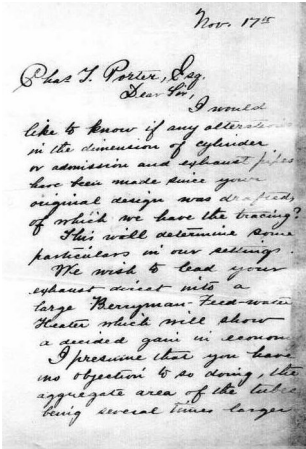 Nov. 17th
Chas T. Porter, Esq.
Dear Sir,
I would
like to know if any alterations
in the dimension of cylinder
or admission and exhaust pipes
have been made since your
original design was drafted,
of which we have the tracing?
This will determine some
particulars in our settings.
We wish to lead your
exhaust direct into a
large Berryman Feed-water
Heater which will show
a decided gain in econom
I presume that you have
no objection to so doing, the
aggregate area of the tubes
being several times larger